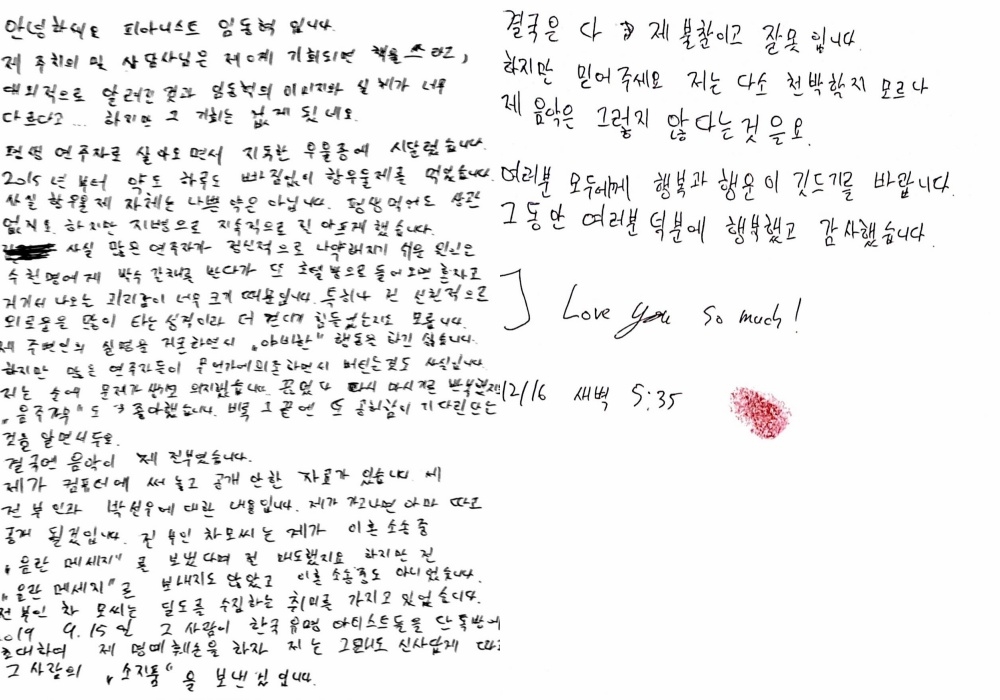 안녕하세요 피아니스트 임동혁 입니다.
제 주치의 및 상담사님은 제에게 기회되면 책을 쓰라고,
대외적으로 알려진것과 임동혁의 이미지와 실체가 너무
다르다고... 하지만 그 기회는 없게 됬네요.
평생 연주자로 살아오면서 지독한 우울증에 시달렸습니다.
2015년부터 약도 하루도 빠짐없이 항우울제를 먹었습니다.
사실 항우울제 자체는 나쁜 약은 아닙니다. 평생먹어도 상관
없지요. 하지만 지병으로 지속적으로 진 아프게 했습니다.
사실 많은 연주자가 정신적으로 나약해지기 쉬운 원인은
수천명에게 박수 갈채를 받다가 또 호텔방으로 들어오면 혼자고
거기서 나오는 괴리감이 너무 크기 때문입니다. 특히나 전 선천적으로
외로움을 많이 타는 성격이라 더 견디기 힘들었는지도 모릅니다.
제 주변인의 실명을 거론하면서 „야비한“ 행동은 하긴 싫습니다.
하지만 많은 연주자들이 무언가에 의존하면서 버티는것도 사실입니다.
저는 술에 문제가 생겨 의지했습니다. 끊었다 다시 마시기를 반복했죠.
„음주가무“도 좋아했습니다. 비록 그 끝엔 또 공허함이 기다린다는
것을 알면서두요.
결국엔 음악이 제 전부였습니다.
제가 컴퓨터에 써 놓고 공개 안한 자료가 있습니다. 제
전 부인과 박선우에 대한 내용입니다. 제가 가고나면 아마 따로
공개 될것입니다. 전 부인 차모씨는 제가 이혼 소송 중
„음란 메세지“를 보냈다며 절 매도했지요 하지만 전
„음란 메세지“를 보내지도 않았고 이혼 소송중도 아니었습니다.
전부인 차 모씨는 딜도를 수집하는 취미를 가지고 있었습니다.
2019 9.15일 그 사람이 한국 유명 아티스트들을 단톡방에
초대하여 제 명예훼손을 하자 저는 그래도 신사답게 따로
그 사람의 „소지품“을 보낸것 입니다.
결국은 다 제 불찰이고 잘못 입니다.
하지만 믿어주세요 저는 다소 천박할지 모르나
제 음악은 그렇지 않다는 것을요.
여러분 모두에게 행복과 행운이 깃드기를 바랍니다.
그동안 여러분 덕분에 행복했고 감사했습니다.
I Love you so much!
12/16 새벽 5:35